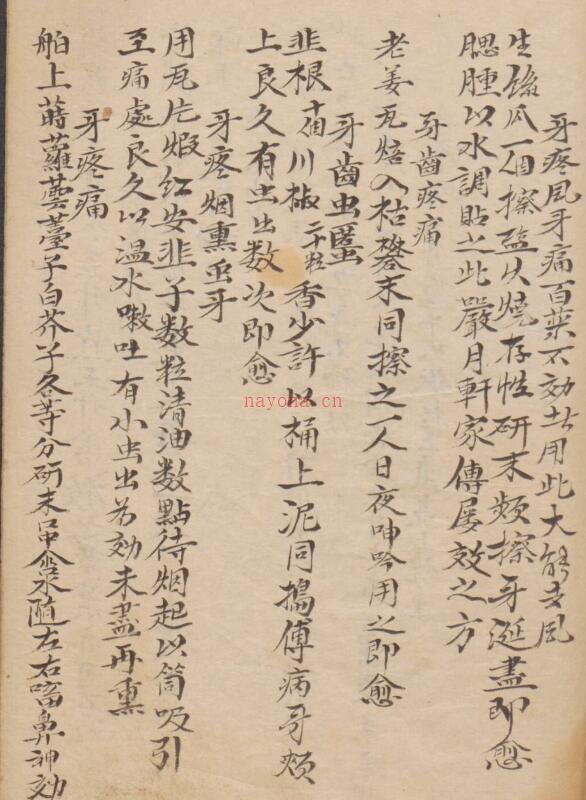 牙疼风牙痛百薬不効者用此大能去风
生絲瓜一個擦盐火燒存性研末频擦牙涎盡即愈
腮腫以水調貼之此嚴月軒家傳屡效之方
牙齒疼痛
老姜瓦焙入枯礬末同擦之一人日夜呻吟用之即愈
牙齒虫䘌
韭根十個川椒二十粒香少許以桶上泥同搗傅病牙颊
上良久有虫出数次即愈
牙疼烟熏虫牙
用瓦片煅红安韭子数粒清油数點待烟起以筒吸引
至痛處良久以温水嗽吐有小虫出為効未盡再熏
牙疼痛
舶上蒔蘿蕓薹子白芥子各等分研末口含水随左右㗜鼻神効
nayona.cn